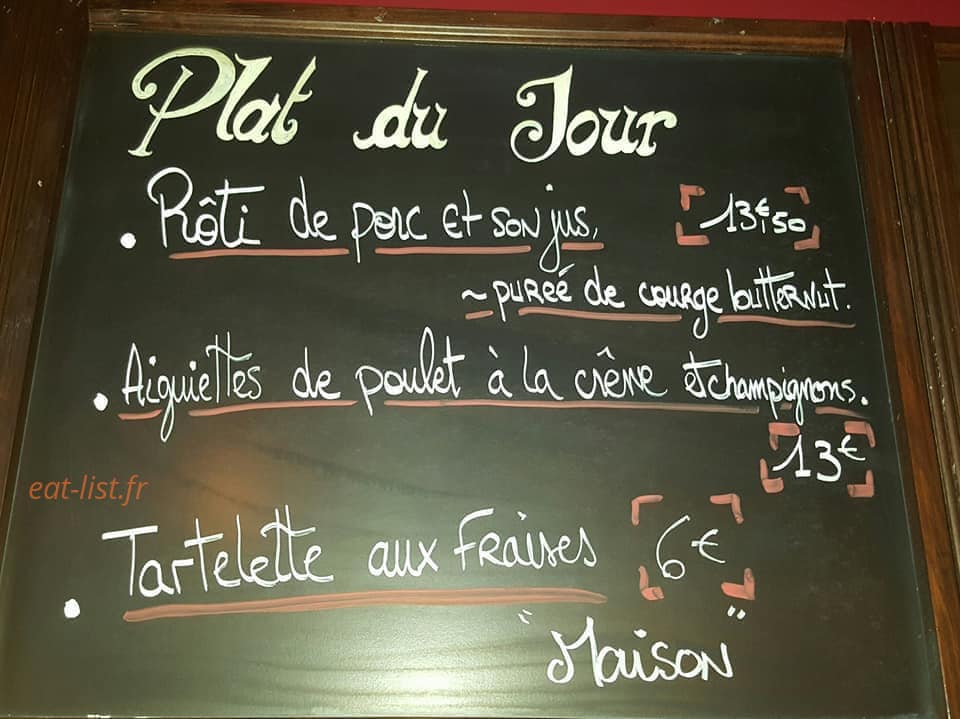 Plat du Jour
• Rôti de porc et son jus, 13€,50
~ purée de courge butternut.
• Aiguiettes de poulet à la crème et champignons.
13€
eat-list.fr
• Tartelette aux Fraises 6€
"Maison"